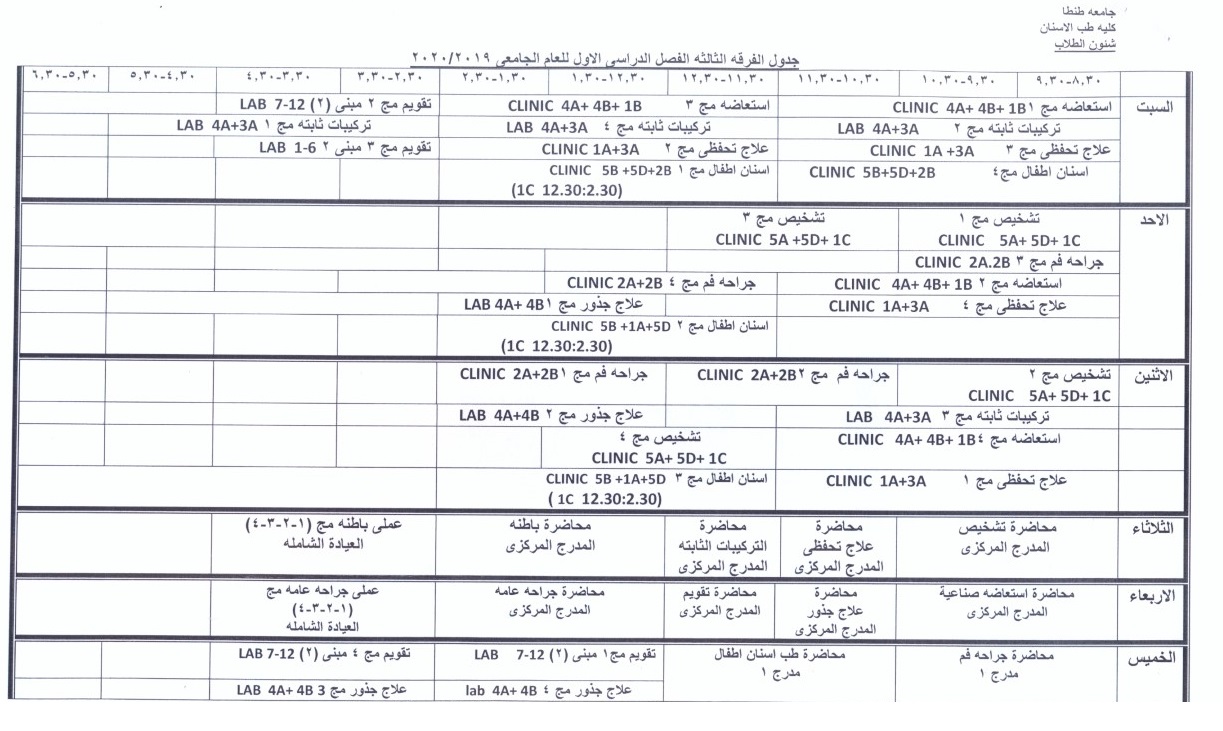 جامعه طنطا
كليه طب الاسنان
شئون الطلاب
جدول الفرقه الثالثه الفصل الدراسى الاول للعام الجامعى ٢٠٢٠/٢٠١٩
٨,٣٠-٩,٣٠ ٩,٣٠-١٠,٣٠ ١٠,٣٠-١١,٣٠ ١١,٣٠-١٢,٣٠ ١٢,٣٠-١,٣٠ ١,٣٠-٢,٣٠ ٢,٣٠-٣,٣٠ ٣,٣٠-٤,٣٠ ٤,٣٠-٥,٣٠ ٥,٣٠-٦,٣٠
السبت
استعاضه مج ١ CLINIC 4A+ 4B+ 1B
استعاضه مج ٣ CLINIC 4A+ 4B+ 1B
تقويم مج ٢ مبنى (٢) LAB 7-12
تركيبات ثابته مج ٢ LAB 4A+3A
تركيبات ثابته مج ٤ LAB 4A+3A
تركيبات ثابته مج ١ LAB 4A+3A
علاج تحفظى مج ٣ CLINIC 1A +3A
علاج تحفظى مج ٢ CLINIC 1A+3A
تقويم مج ٣ مبنى ٢ LAB 1-6
اسنان اطفال مج٤ CLINIC 5B+5D+2B
اسنان اطفال مج ١ CLINIC 5B +5D+2B
(1C 12.30:2.30)
الاحد
تشخيص مج ١
CLINIC 5A+ 5D+ 1C
تشخيص مج ٣
CLINIC 5A +5D+ 1C
جراحه فم مج ٣ CLINIC 2A.2B
استعاضه مج ٢ CLINIC 4A+ 4B+ 1B
جراحه فم مج ٤ CLINIC 2A+2B
علاج تحفظى مج ٤ CLINIC 1A+3A
علاج جذور مج ١ LAB 4A+ 4B
اسنان اطفال مج ٢ CLINIC 5B +1A+5D
(1C 12.30:2.30)
الاثنين
تشخيص مج ٢
CLINIC 5A+ 5D+ 1C
جراحه فم مج ٢ CLINIC 2A+2B
جراحه فم مج ١ CLINIC 2A+2B
تركيبات ثابته مج ٣ LAB 4A+3A
علاج جذور مج ٢ LAB 4A+4B
استعاضه مج ٤ CLINIC 4A+ 4B+ 1B
تشخيص مج ٤
CLINIC 5A+ 5D+ 1C
علاج تحفظى مج ١ CLINIC 1A+3A
اسنان اطفال مج ٣ CLINIC 5B +1A+5D
( 1C 12.30:2.30)
الثلاثاء
محاضرة تشخيص
المدرج المركزى
محاضرة
علاج تحفظى
المدرج المركزى
محاضرة
التركيبات الثابته
المدرج المركزى
محاضرة باطنه
المدرج المركزى
عملى باطنه مج (١-٢-٣-٤)
العيادة الشامله
الاربعاء
محاضرة استعاضه صناعية
المدرج المركزى
محاضرة
علاج جذور
المدرج المركزى
محاضرة تقويم
المدرج المركزى
محاضرة جراحه عامه
المدرج المركزى
عملى جراحه عامه مج
(١-٢-٣-٤)
العيادة الشامله
الخميس
محاضرة جراحه فم
مدرج ١
محاضرة طب اسنان اطفال
مدرج ١
تقويم مج١ مبنى (٢) LAB 7-12
تقويم مج ٤ مبنى (٢) LAB 7-12
علاج جذور مج ٤ lab 4A+ 4B
علاج جذور مج 3 LAB 4A+ 4B